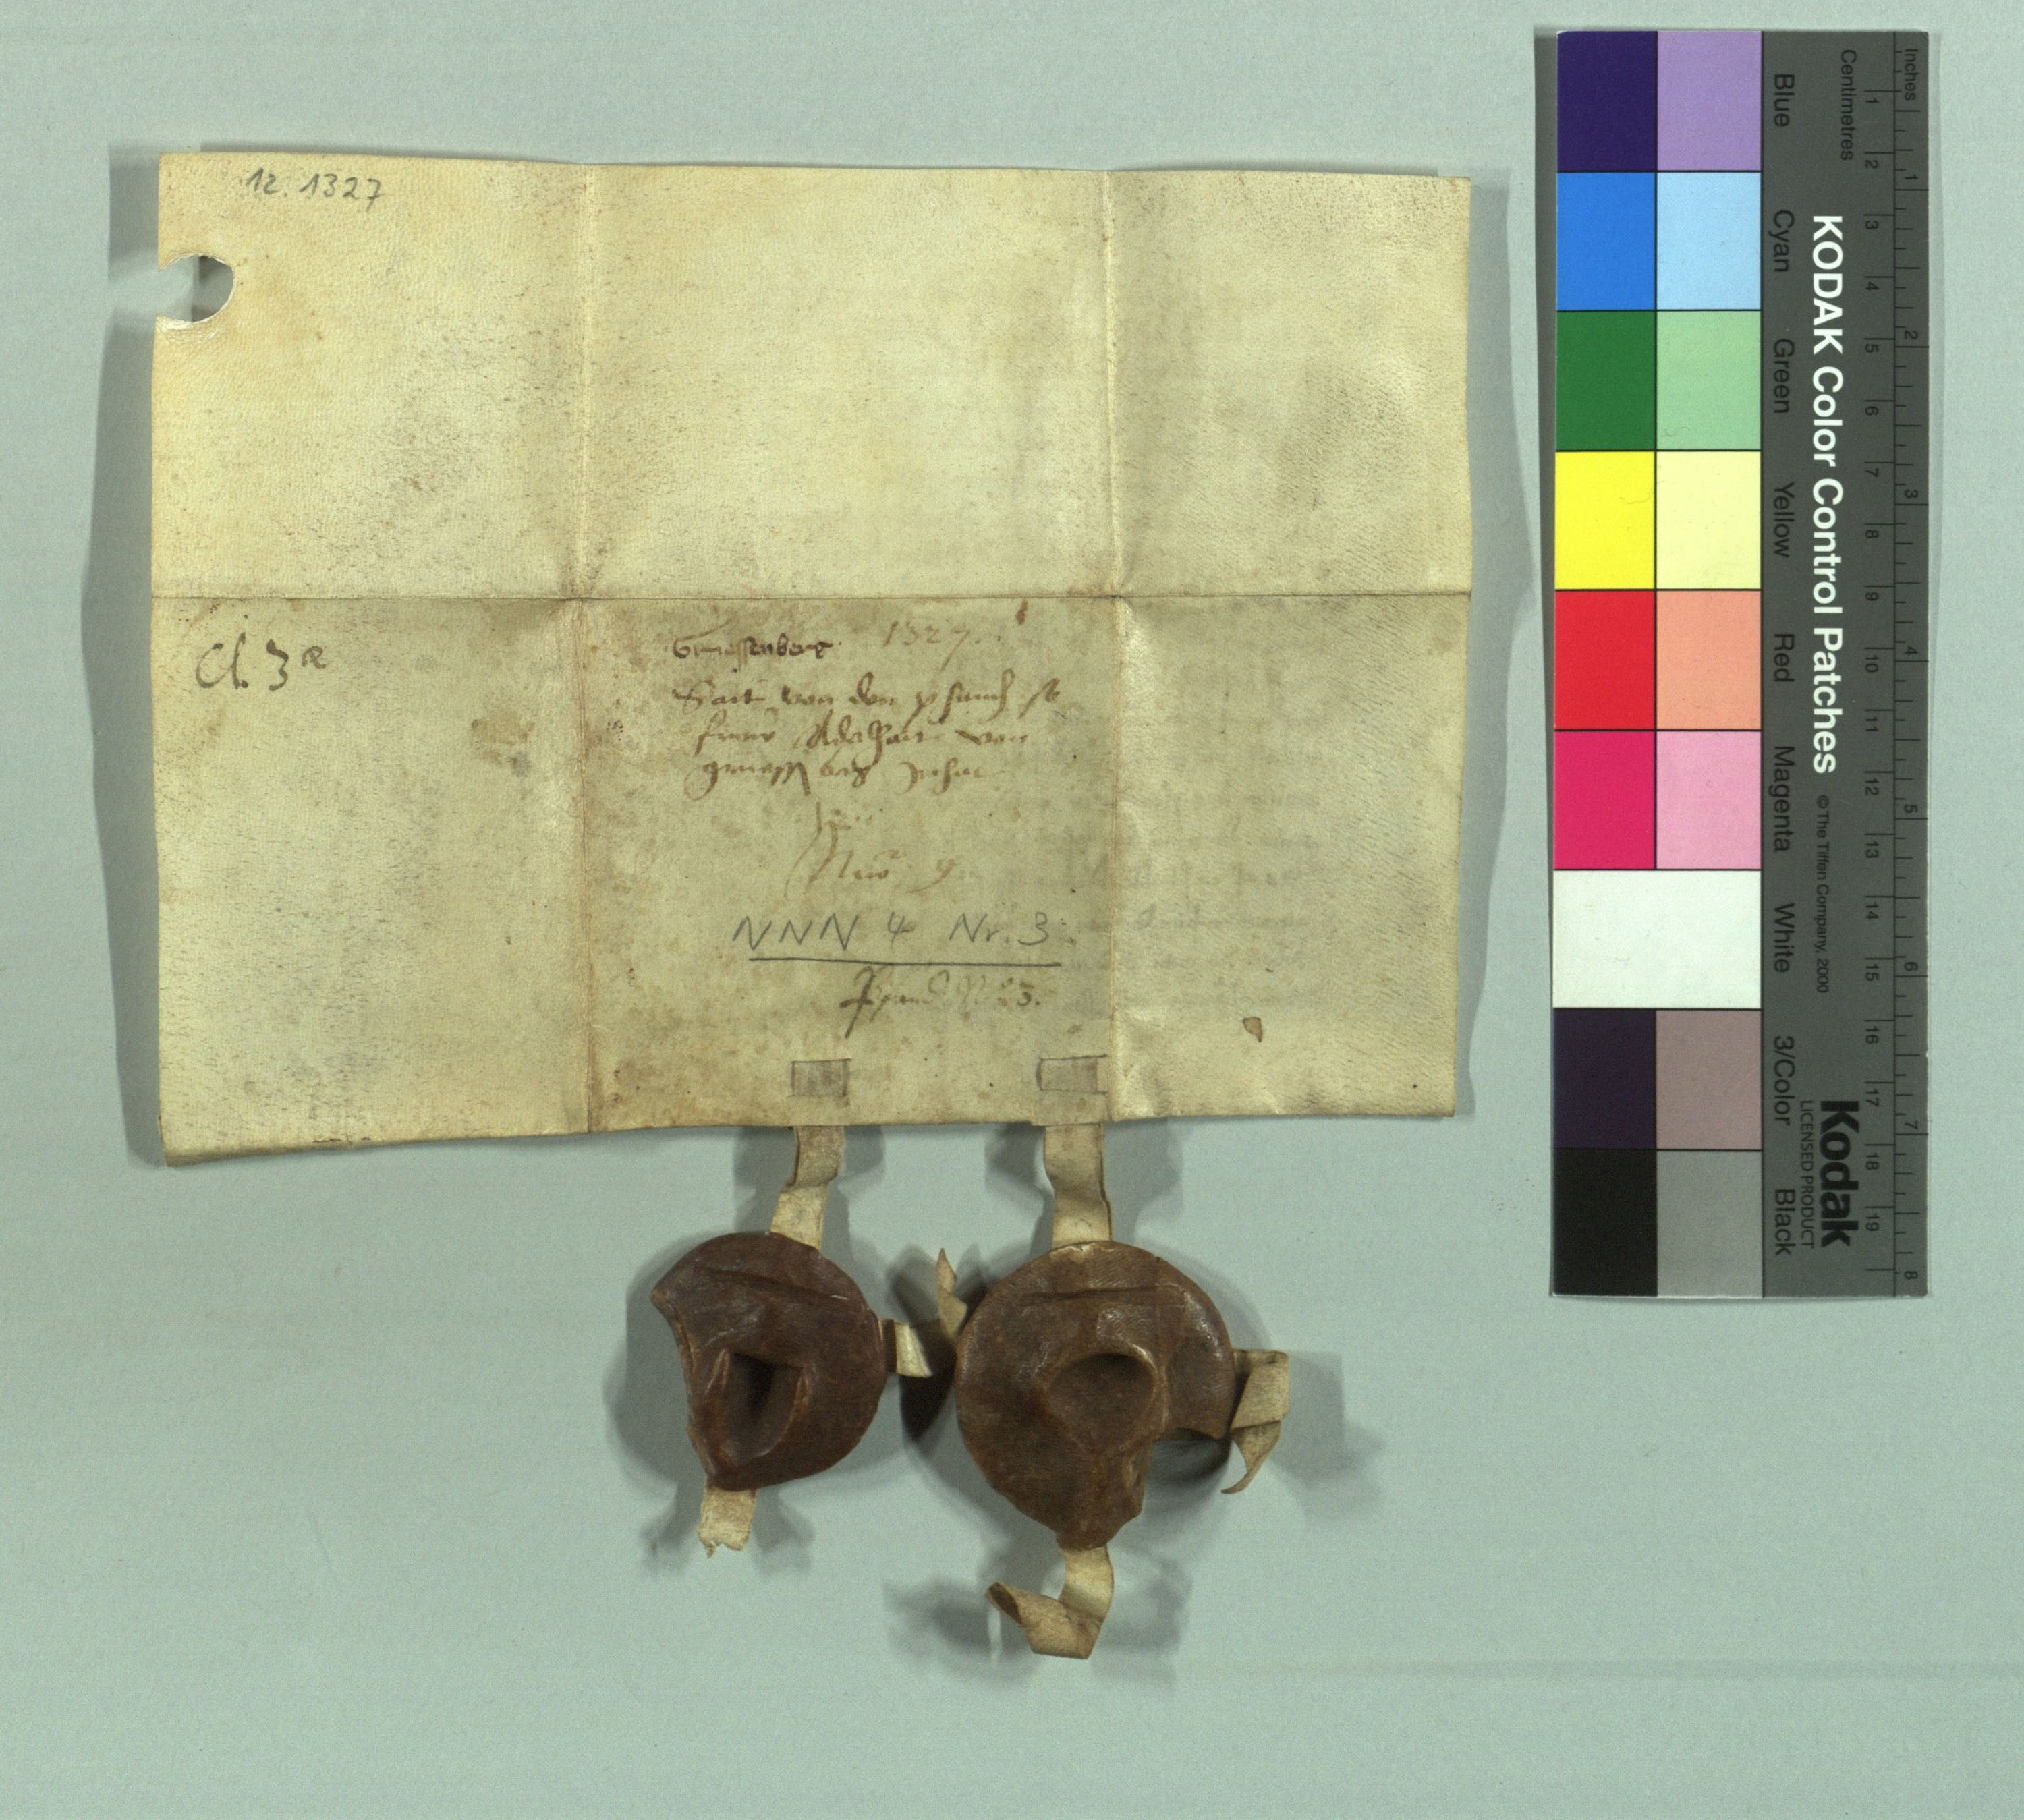 12. 1327
Cl. 3 a
Griessenberg 1327.
Sait von den pfand so
frow Adelhait von
griessenberg
Nro 9
NNN 4 Nr. 3.
Pfand N. 3.
Inches
Centimetres
1 2 3 4 5 6 7 8 9 10 11 12 13 14 15 16 17 18 19
1 2 3 4 5 6 7 8
KODAK Color Control Patches © The Tiffen Company, 2000
Kodak
LICENSED PRODUCT
Blue
Cyan
Green
Yellow
Red
Magenta
White
3/Color
Black